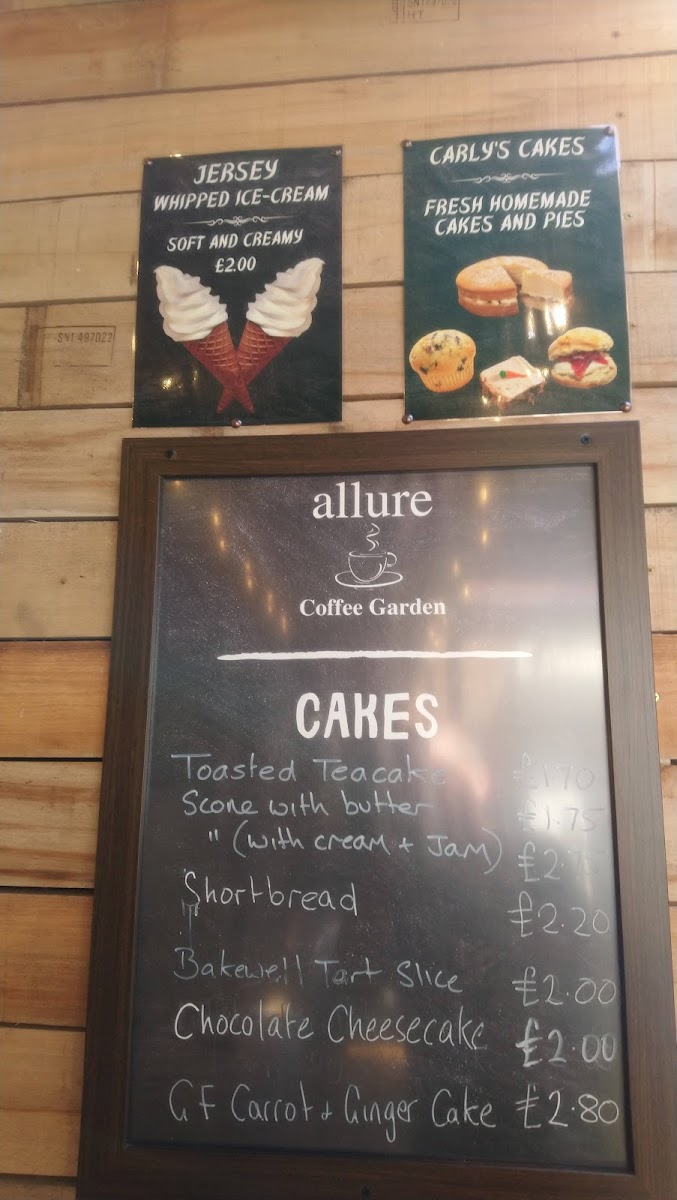 JERSEY
WHIPPED ICE-CREAM
SOFT AND CREAMY
£2.00
CARLY'S CAKES
FRESH HOMEMADE
CAKES AND PIES
SN1 497022
allure
Coffee Garden
CAKES
Toasted Teacake £1.70
Scone with butter £1.75
" (with cream + Jam) £2.75
Shortbread £2.20
Bakewell Tart Slice £2.00
Chocolate Cheesecake £2.00
GF Carrot + Ginger Cake £2.80